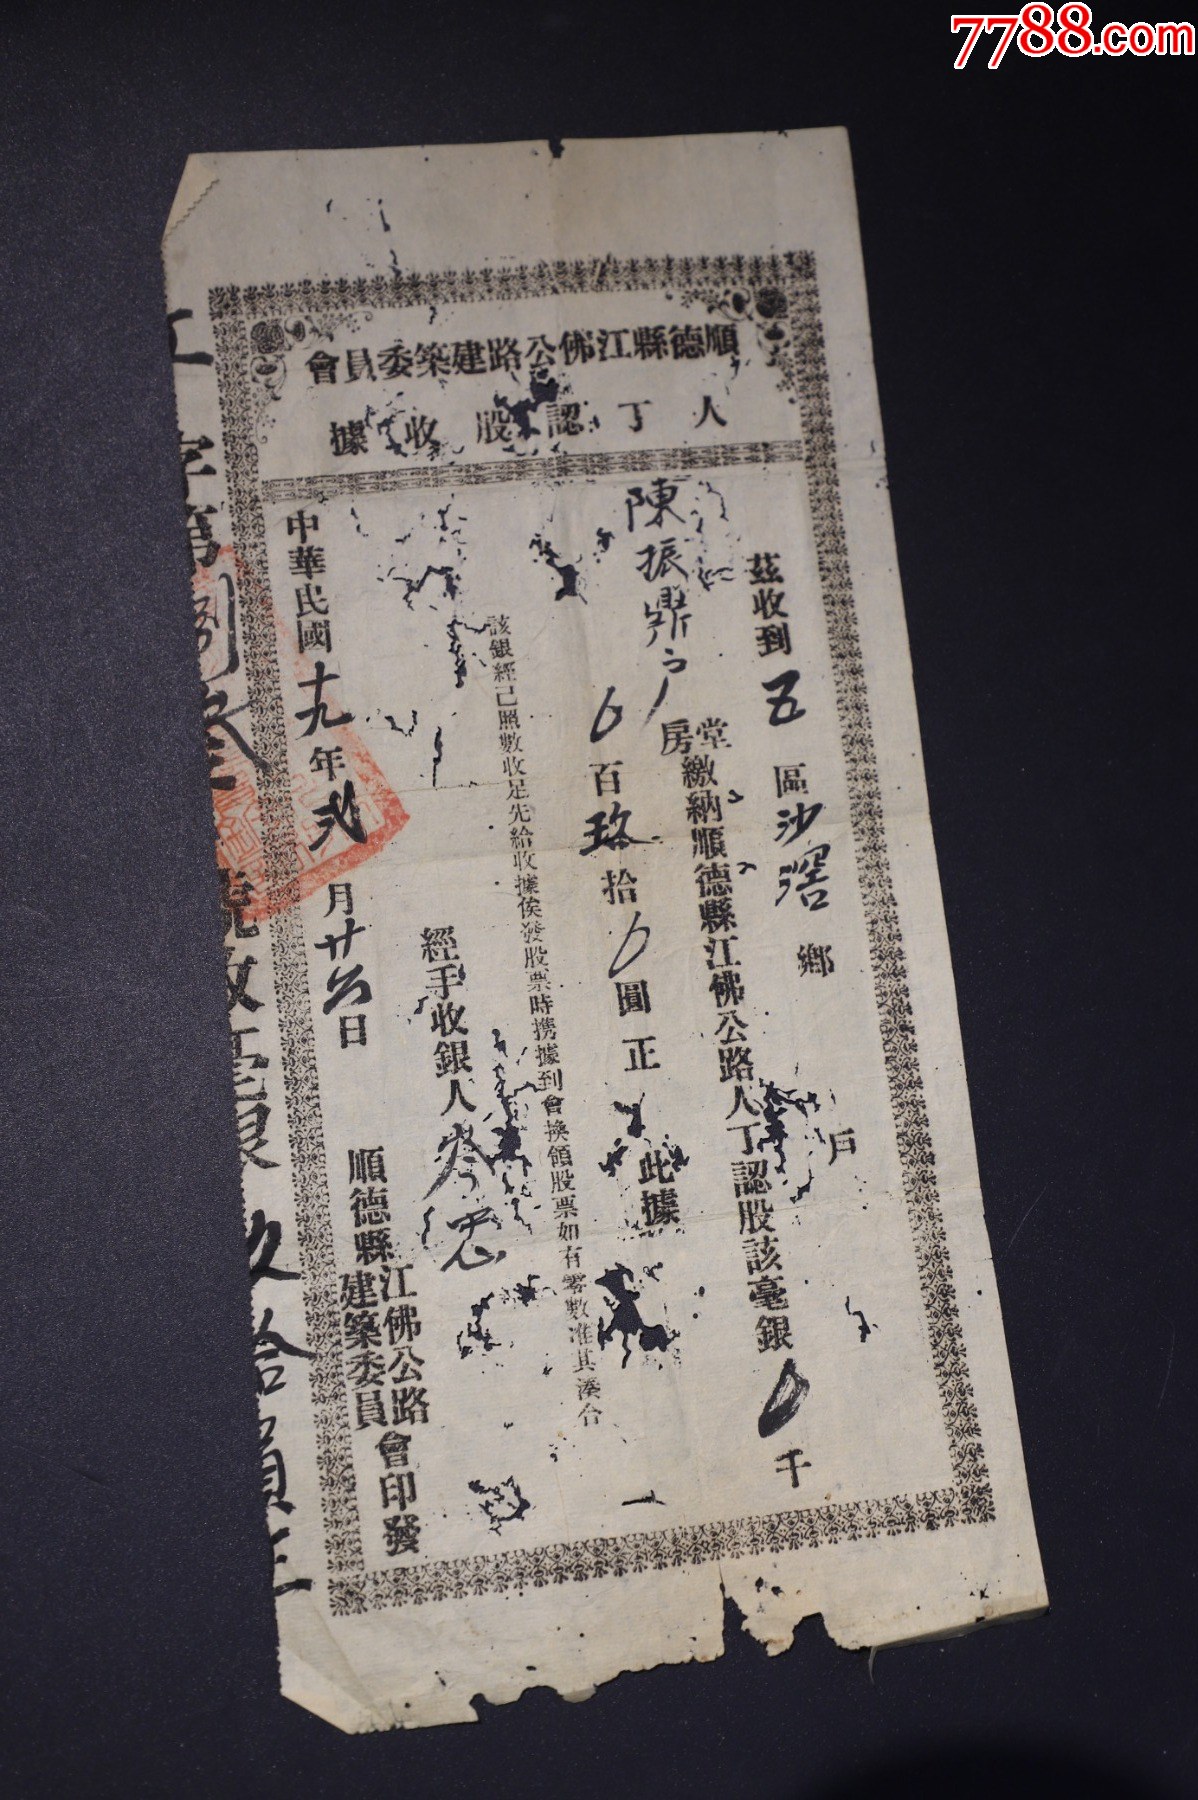 7788.com
順德縣江佛公路建築委員會
人丁認股收據
茲收到五區沙滘鄉 戶
陳振鼎戶
堂房繳納順德縣江佛公路人丁認股該毫銀0千
0百玖拾0圓正 此據
該銀經已照數收足先給收據俟發股票時携據到會換領股票如有零數准其湊合
經手收銀人
中華民國十九年弍月廿六日
順德縣江佛公路建築委員會印發
字第 號收毫銀玖拾 正